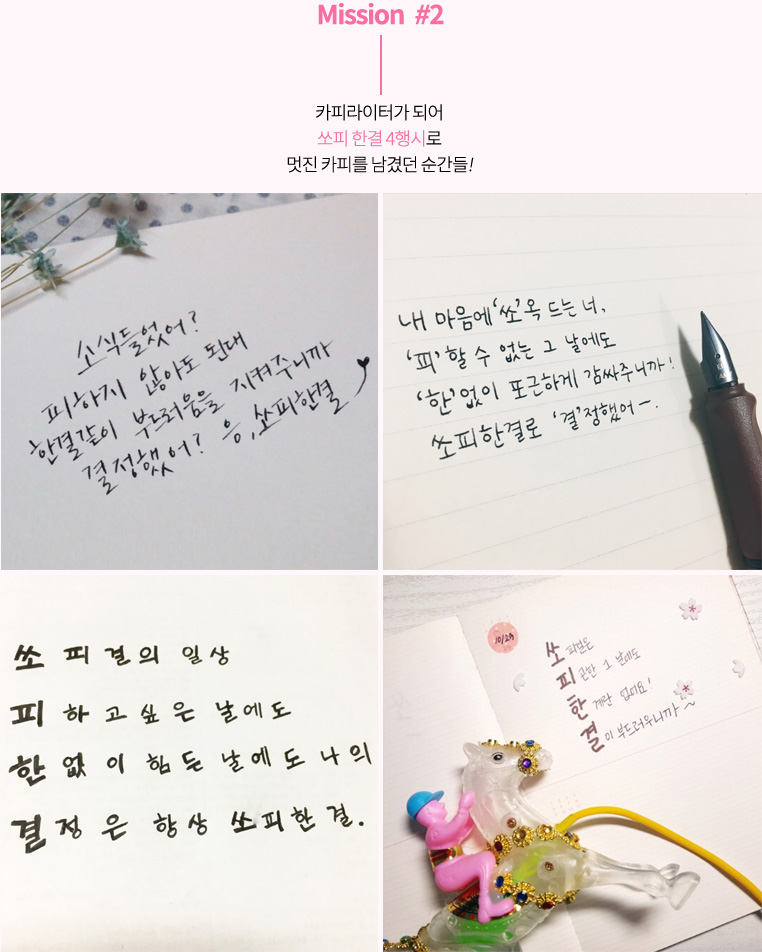 Mission #2
카피라이터가 되어
쏘피 한결 4행시로
멋진 카피를 남겼던 순간들!
소식들었어?
피하지 않아도 된대
한결같이 부드러움을 지켜주니까
결정했어? 응, 쏘피한결
내 마음에 '쏘'옥 드는 너,
'피'할 수 없는 그 날에도
'한'없이 포근하게 감싸주니까!
쏘피한결로 '결'정했어ー.
쏘 피 결의 일상
피 하 고 싶 은 날에도
한 없 이 힘 든 날에도 나의
결 정 은 항상 쏘피한결.
10/29
쏘 피한은
피 곤한 그 날에도
한 계란 없어요!
결 이 부드러우니까~